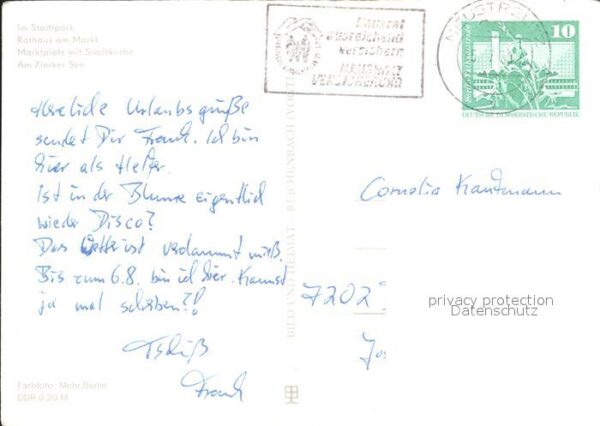 Im Stadtpark
Rathaus am Markt
Marktplatz mit Stadtkirche
Am Zierker See
Hausrat
ausreichend
versichern
HAUSHALT
VERSICHERUNG
NEUSTRELITZ
10
DEUTSCHE DEMOKRATISCHE REPUBLIK
Herzliche Urlaubsgrüße
sendet Dir Frank. Ich bin
hier als Helfer.
Ist in der Blume eigentlich
wieder Disco?
Das Wetter ist verdammt mieß.
Bis zum 6.8. bin ich hier. Kannst
ja mal schreiben?!
Tschüß
Frank
BILD UND HEIMAT REICHENBACH (VOGTL
Cornelia Kaufmann
7202
privacy protection
Datenschutz
Farbfoto: Mohr, Berlin
DDR 0,20 M